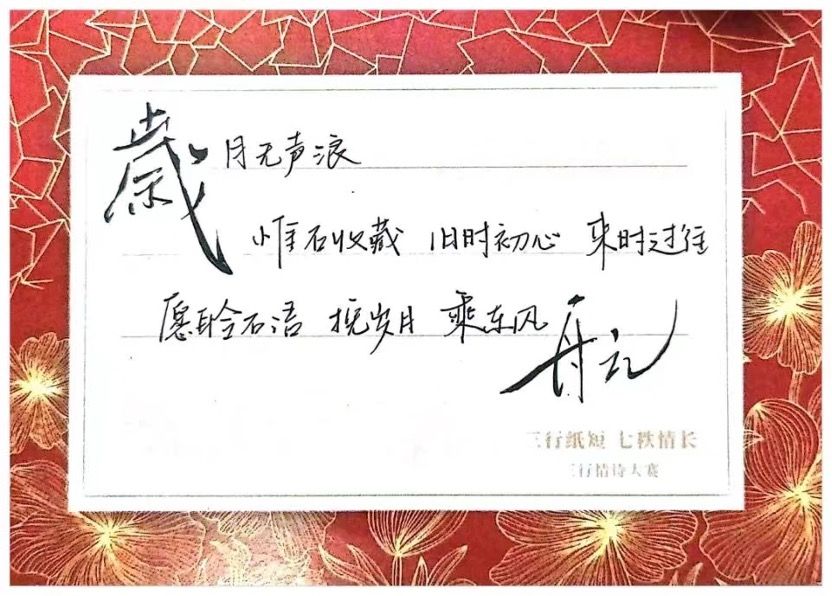 歲月无声浪
惟石收藏 旧时初心 来时过往
愿聆石语 挽岁月 乘东风 再起
三行纸短 七秩情长
三行情诗大赛